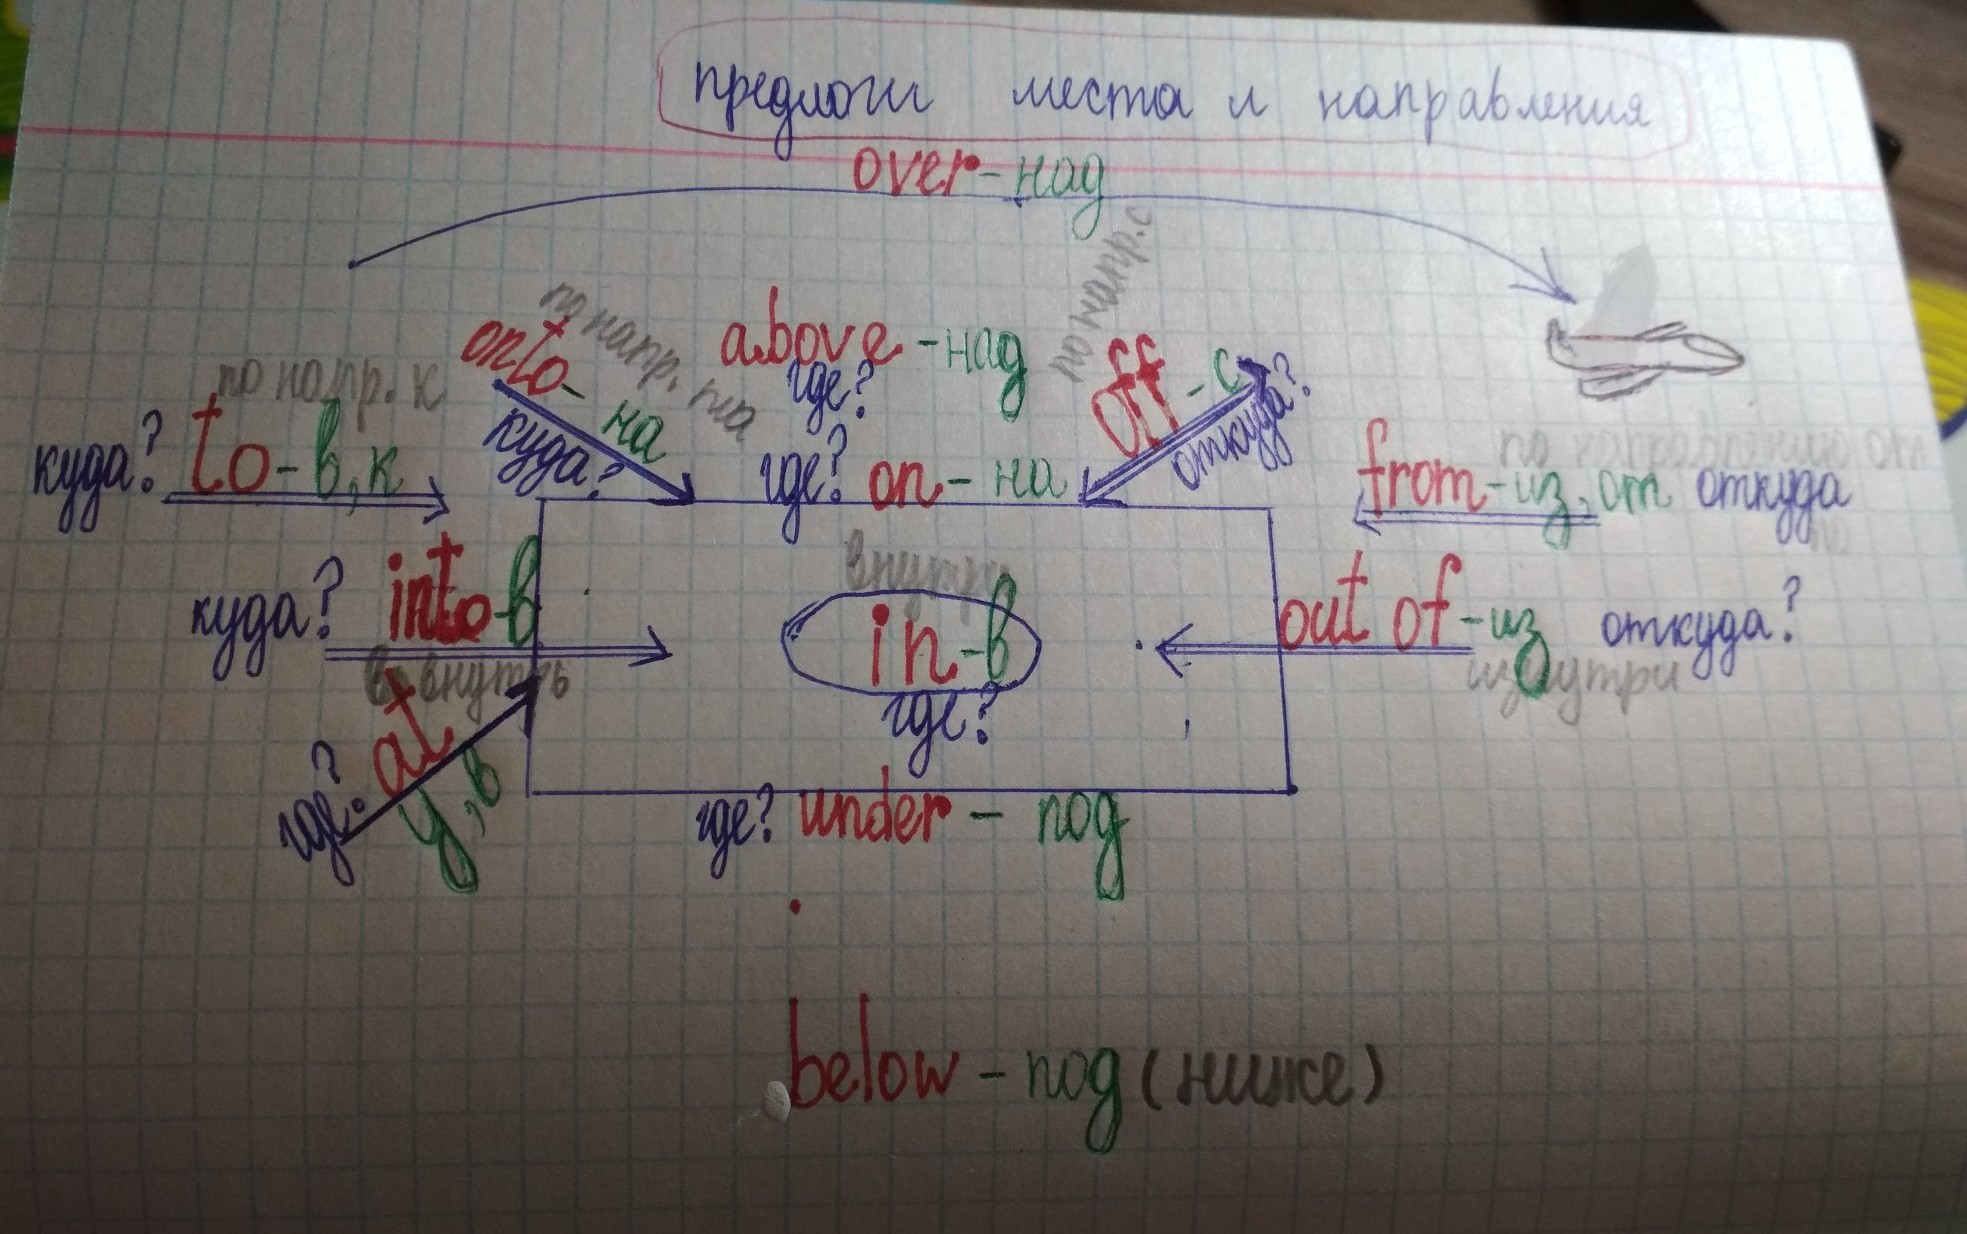 предлоги места и направления
over - над
по напр. с
по напр. на
onto - на
куда?
above - над
где?
off - с
откуда?
по напр. к
куда? to - в, к
где? on - на
по направлению от
from - из, от откуда
по
внутри
куда? into - в
in - в
где?
out of - из откуда?
во внутрь
изнутри
где? at
у, в
где? under - под
below - под (ниже)